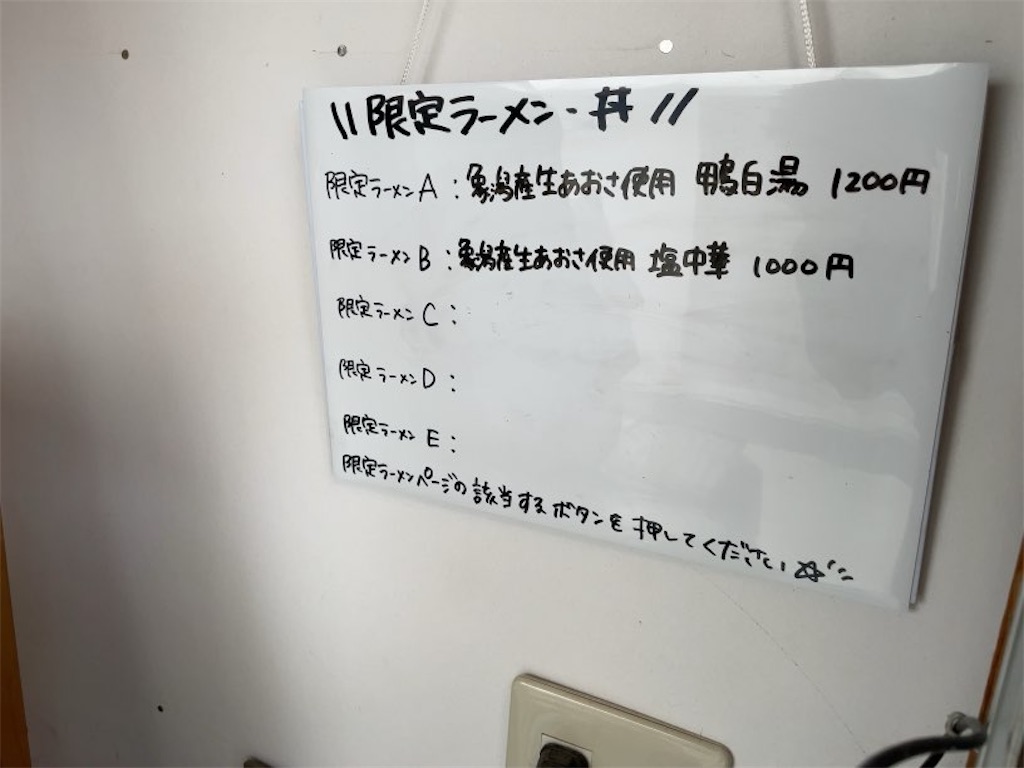 \\限定ラーメン・丼//
限定ラーメンA:象潟産生あおさ使用 鴨白湯 1200円
限定ラーメンB:象潟産生あおさ使用 塩中華 1000円
限定ラーメンC:
限定ラーメンD:
限定ラーメンE:
限定ラーメンページの該当するボタンを押してください☆